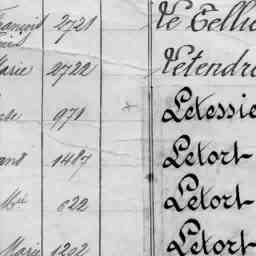 2721 Le Tellie
Marie 2722 Letendre
971 Letessie
1487 Letort
622 Letort
Marie 1292 Letort